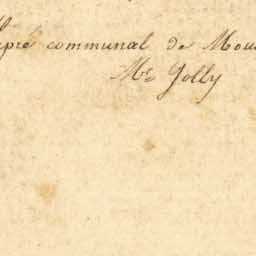 pré communal de Mou
Mr Jolly